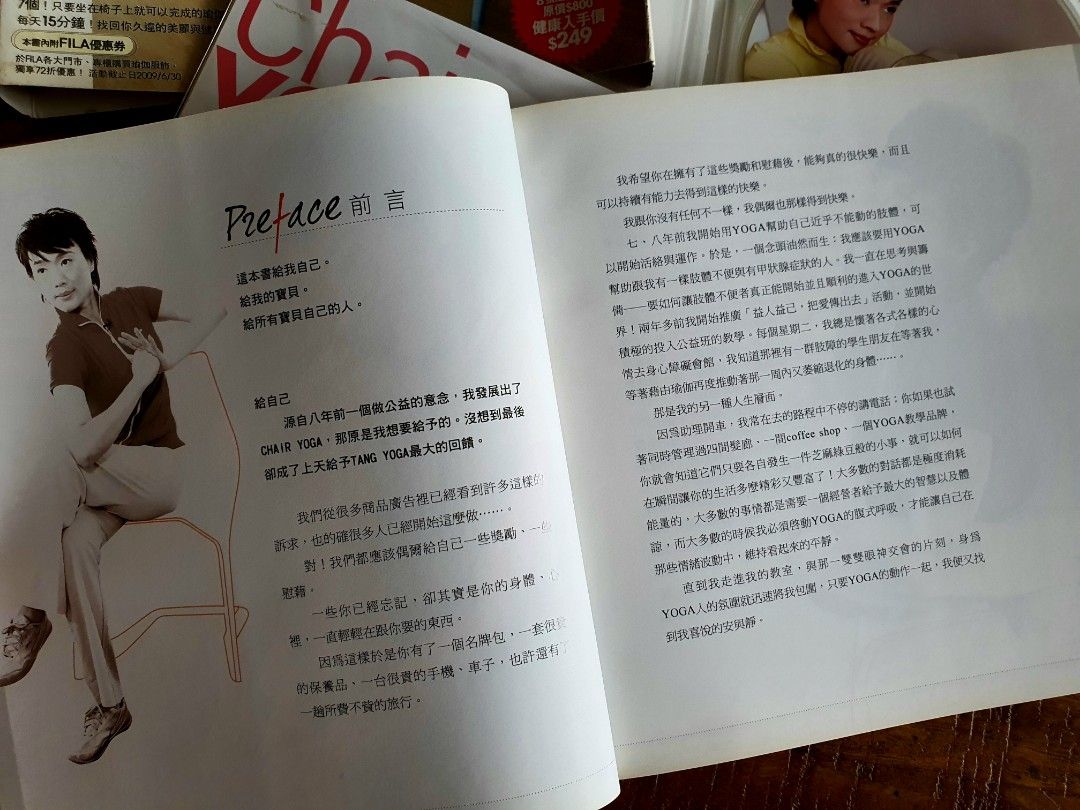 7個！只要坐在椅子上就可以完成的瑜伽
每天15分鐘！找回你久違的美麗與
本書內附FILA優惠券
於FILA各大門市、專櫃購買瑜伽服飾，
獨享72折優惠！ 活動截止日2009/6/30
Chair
原價$800
健康入手價
$249
Preface 前言
這本書給我自己。
給我的寶貝。
給所有寶貝自己的人。
給自己
源自八年前一個做公益的意念，我發展出了
CHAIR YOGA，那原是我想要給予的。沒想到最後
卻成了上天給予TANG YOGA最大的回饋。
我們從很多商品廣告裡已經看到許多這樣的
訴求，也的確很多人已經開始這麼做⋯⋯。
對！我們都應該偶爾給自己一些獎勵、一些
慰藉。
一些你已經忘記，卻其實是你的身體、心
裡，一直輕輕在跟你要的東西。
因為這樣於是你有了一個名牌包，一套很
的保養品、一台很貴的手機、車子，也許還有了
一趟所費不貲的旅行。
我希望你在擁有了這些獎勵和慰藉後，能夠真的很快樂，而且
可以持續有能力去得到這樣的快樂。
我跟你沒有任何不一樣，我偶爾也那樣得到快樂。
七、八年前我開始用YOGA幫助自己近乎不能動的肢體，可
以開始活絡與運作。於是，一個念頭油然而生：我應該要用YOGA
幫助跟我有一樣肢體不便與有甲狀腺症狀的人。我一直在思考與籌
備——要如何讓肢體不便者真正能開始並且順利的進入YOGA的世
界！兩年多前我開始推廣「益人益己，把愛傳出去」活動，並開始
積極的投入公益班的教學。每個星期二，我總是懷著各式各樣的心
情去身心障礙會館，我知道那裡有一群肢障的學生朋友在等著我，
等著藉由瑜伽再度推動著那一周內又萎縮退化的身體⋯⋯。
那是我的另一種人生層面。
因為助理開車，我常在去的路程中不停的講電話；你如果也試
著同時管理過四間髮廊、一間coffee shop、一個YOGA教學品牌，
你就會知道它們只要各自發生一件芝麻綠豆般的小事，就可以如何
在瞬間讓你的生活多麼精彩又豐富了！大多數的對話都是極度消耗
能量的，大多數的事情都是需要一個經營者給予最大的智慧以及體
諒，而大多數的時候我必須啓動YOGA的腹式呼吸，才能讓自己在
那些情緒波動中，維持看起來的平靜。
直到我走進我的教室，與那一雙雙眼神交會的片刻，身為
YOGA人的氛圍就迅速將我包圍，只要YOGA的動作一起，我便又找
到我喜悅的安與靜。